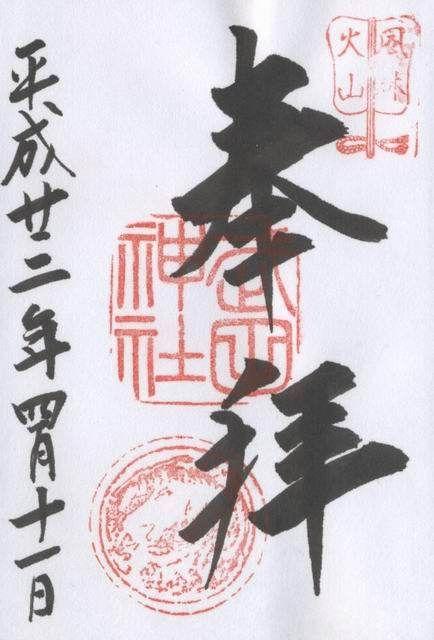 風林
火山
奉拝
武田
神社
平成廿二年四月十一日